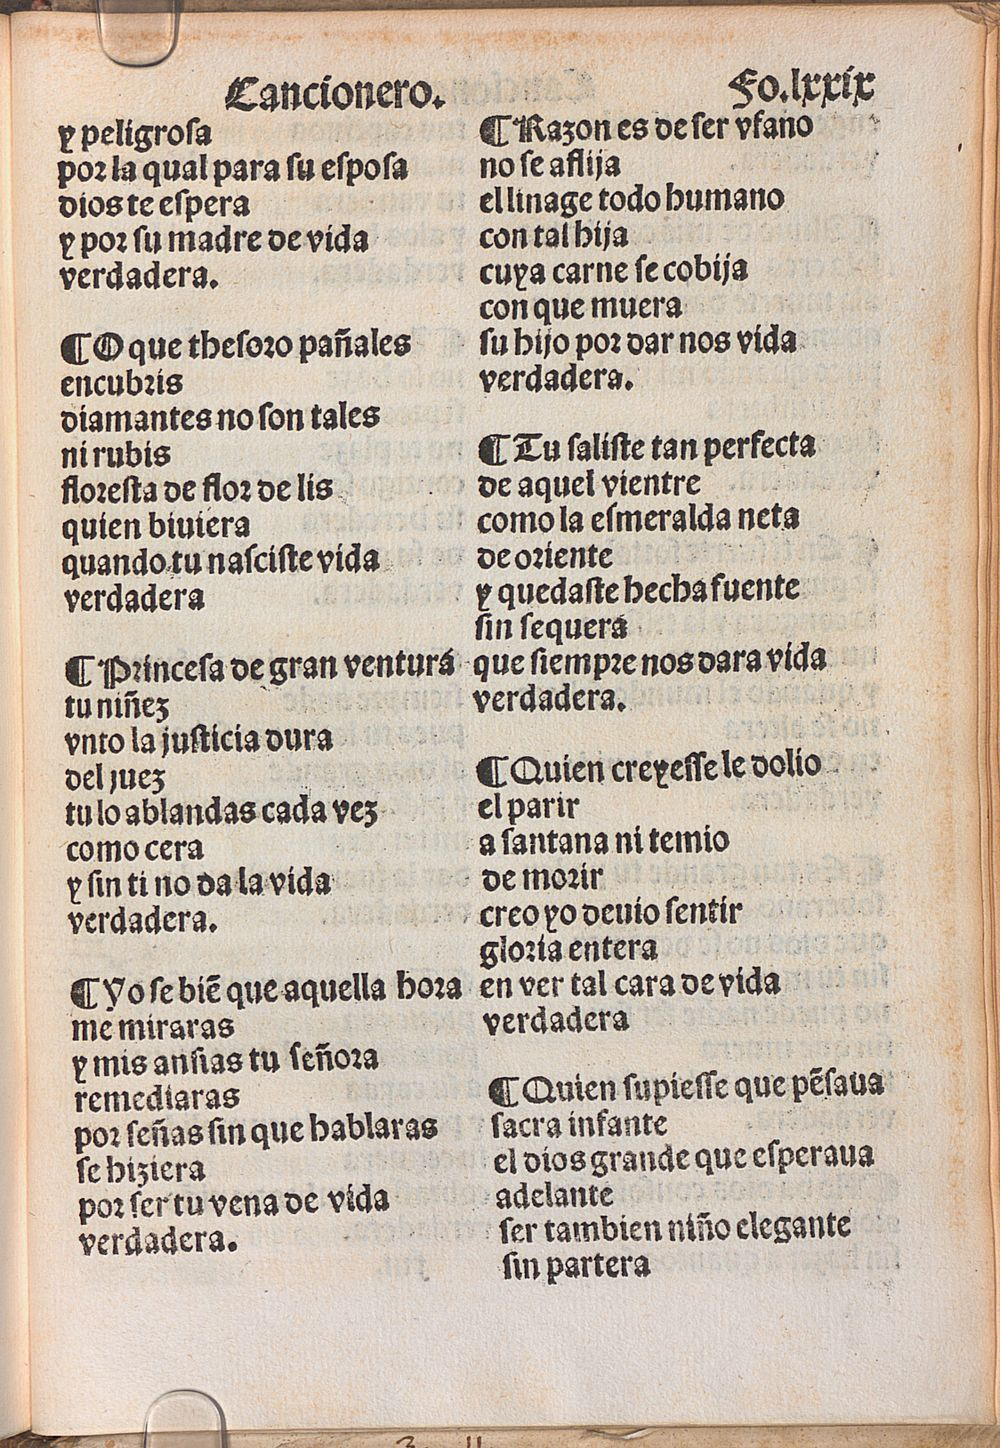 Cancionero.
Fo.lxxix
y peligrosa
por la qual para su esposa
dios te espera
y por su madre de vida
verdadera.
¶O que thesoro pañales
encubris
diamantes no son tales
ni rubis
floresta de flor de lis
quien biuiera
quando tu nasciste vida
verdadera
¶Princesa de gran ventura
tu niñez
vnto la justicia dura
del juez
tu lo ablandas cada vez
como cera
y sin ti no da la vida
verdadera.
¶Yo se biẽ que aquella hora
me miraras
y mis ansias tu señora
remediaras
por señas sin que hablaras
se hiziera
por ser tu vena de vida
verdadera.
¶Razon es de ser vfano
no se aflija
el linage todo humano
con tal hija
cuya carne se cobija
con que muera
su hijo por dar nos vida
verdadera.
¶Tu saliste tan perfecta
de aquel vientre
como la esmeralda neta
de oriente
y quedaste hecha fuente
sin sequera
que siempre nos dara vida
verdadera.
¶Quien creyesse le dolio
el parir
a santana ni temio
de morir
creo yo deuio sentir
gloria entera
en ver tal cara de vida
verdadera
¶Quien supiesse que pẽsaua
sacra infante
el dios grande que esperaua
adelante
ser tambien niño elegante
sin partera